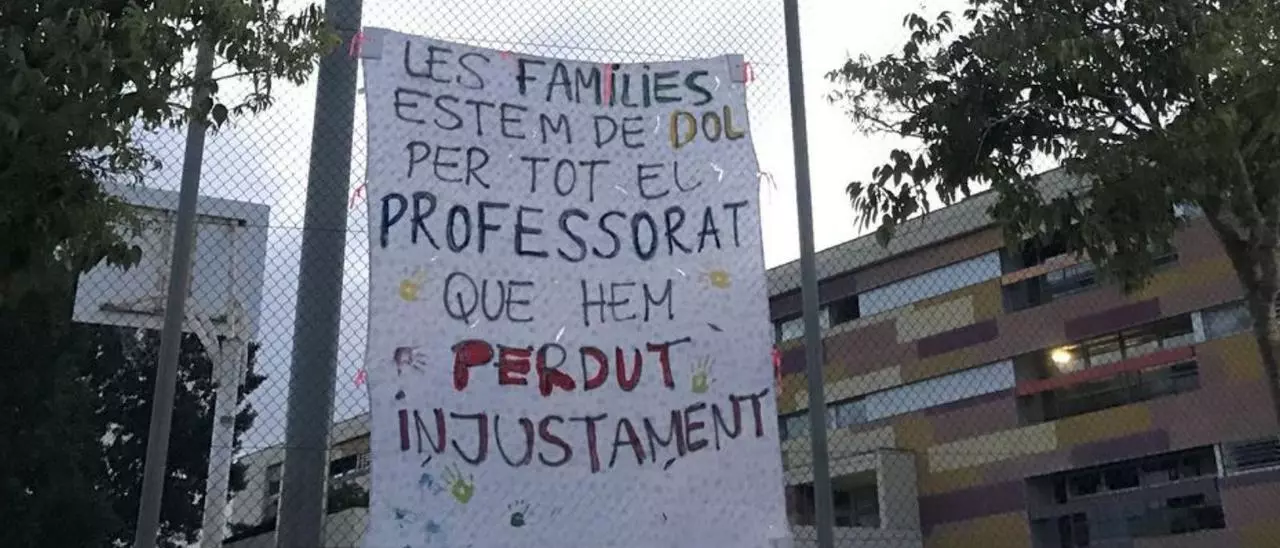 LES FAMíLIES
ESTEM DE DOL
PER TOT EL
PROFESSORAT
QUE HEM
PERDUT
iNJUSTAMENT